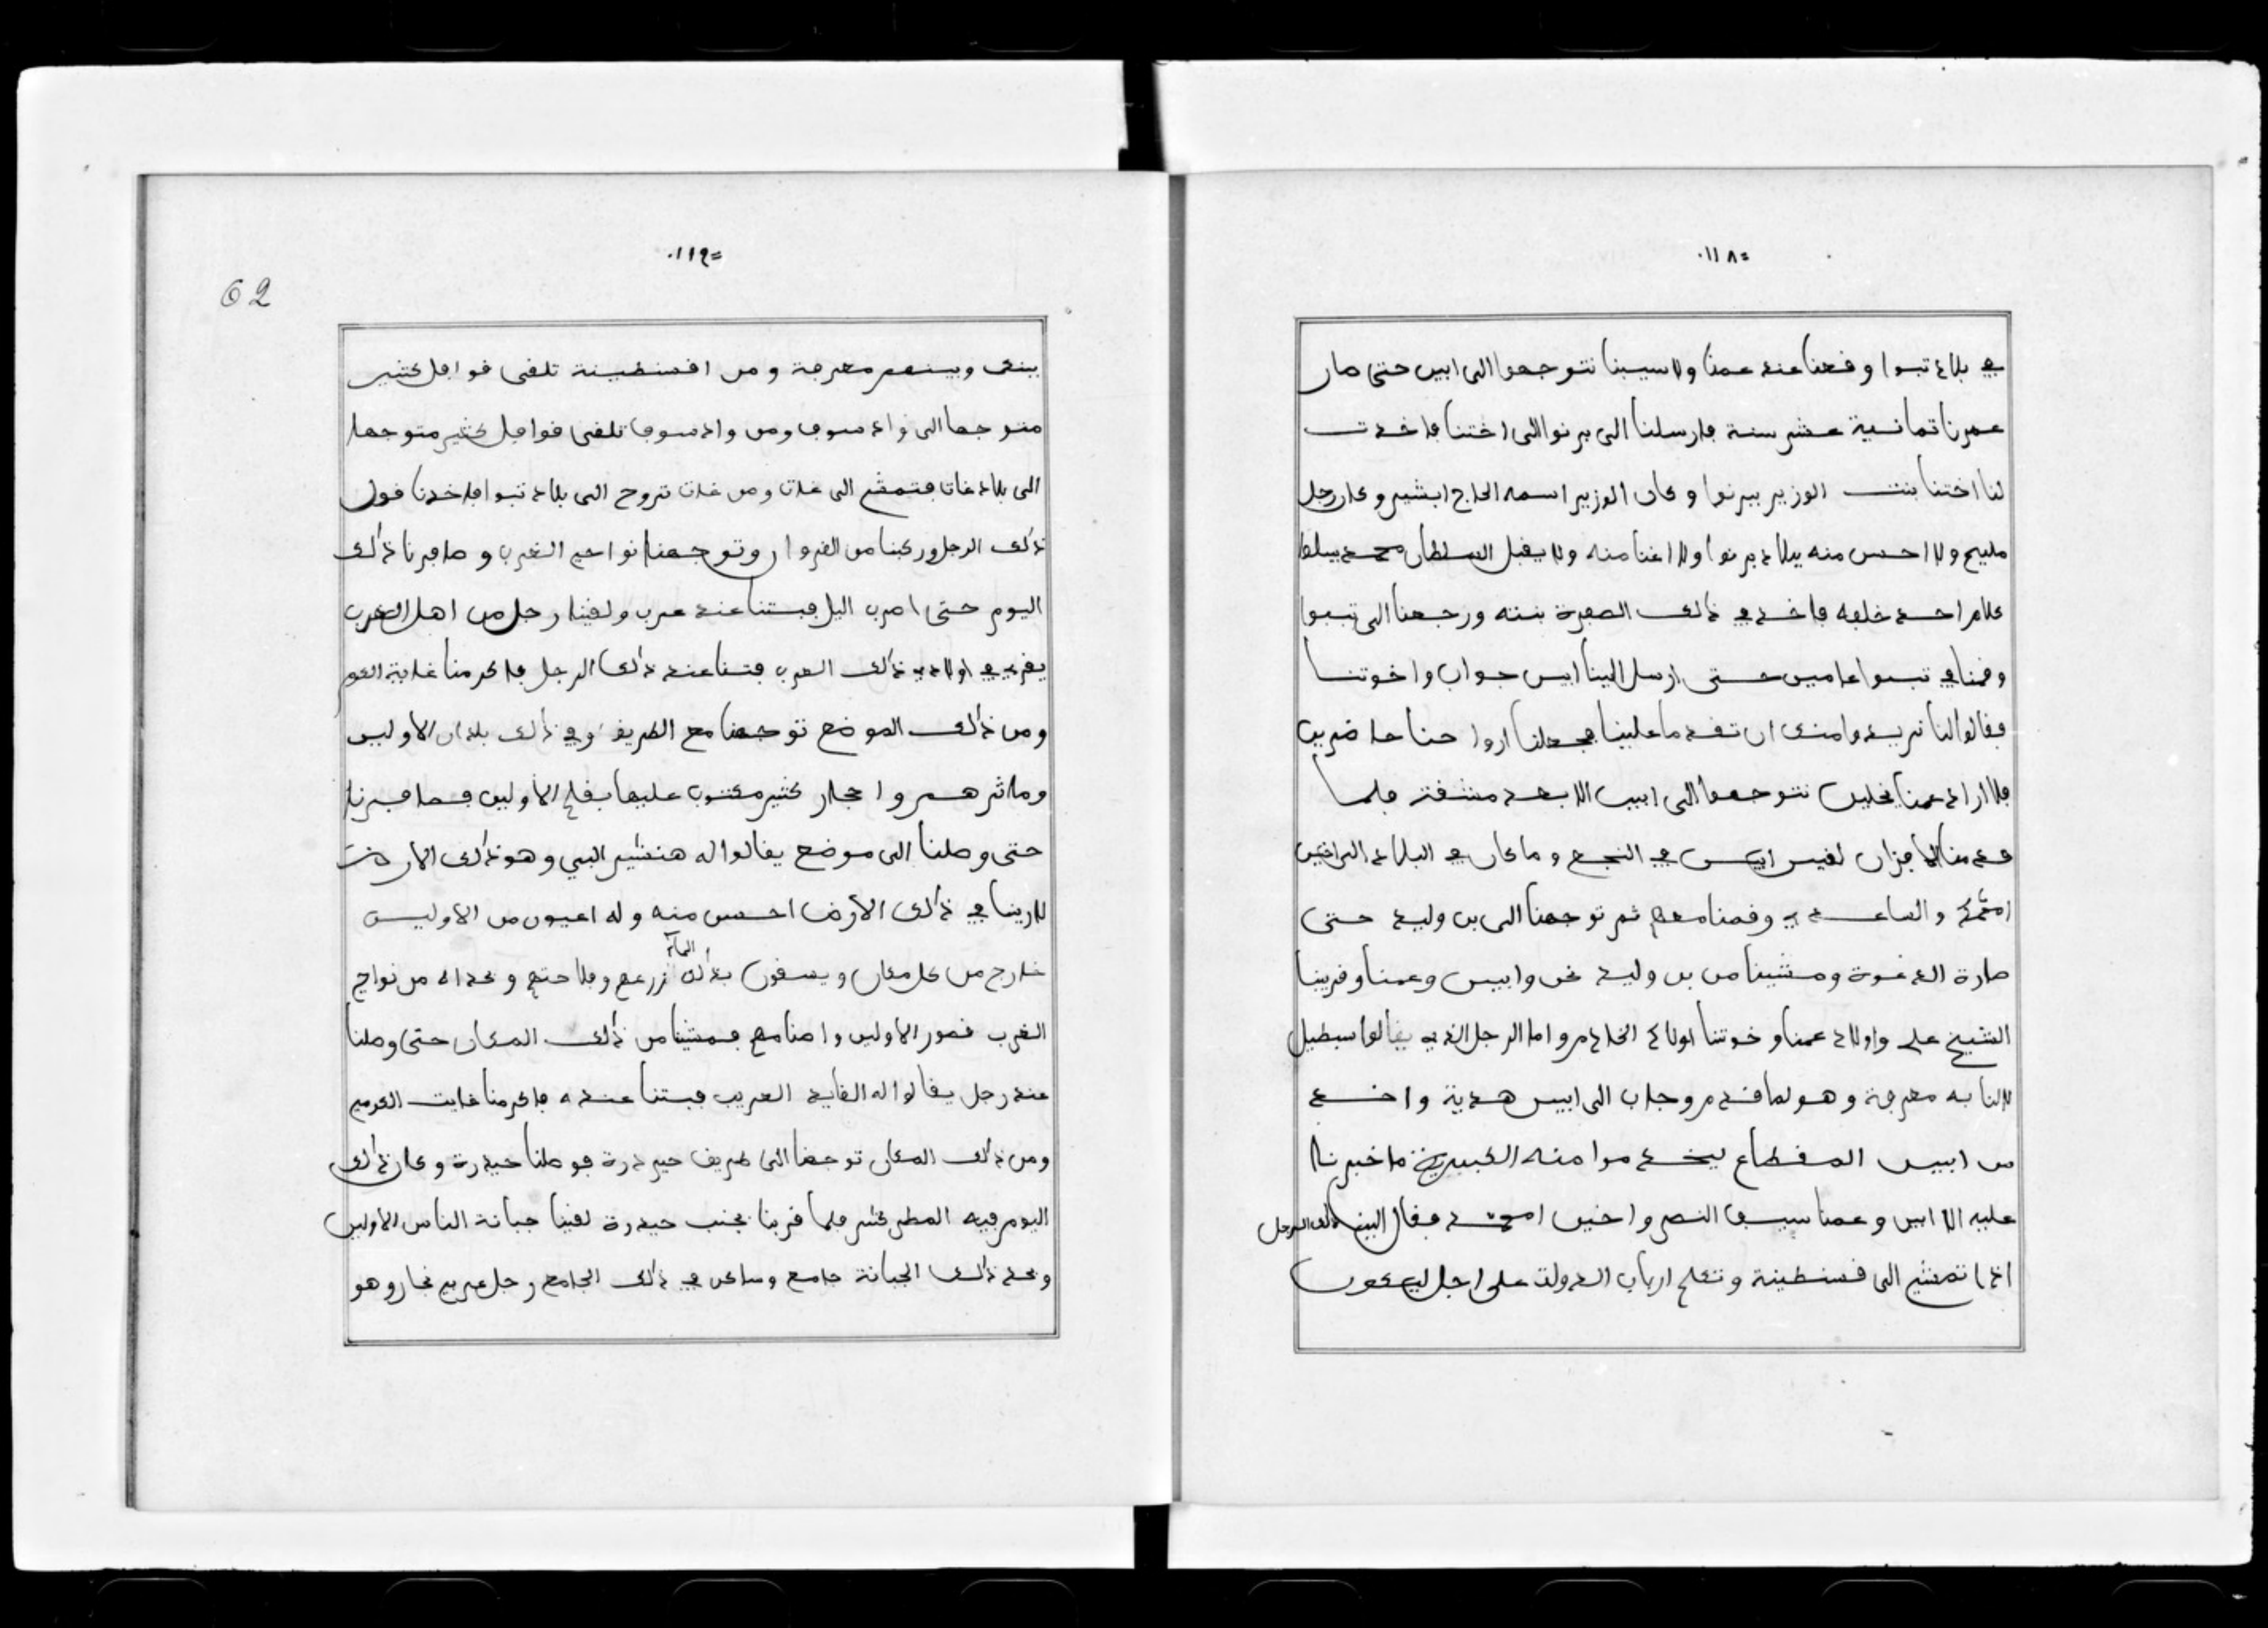 =١١٨٠
في بلاد تبوا وقعنا عند عمنا ولا سيبنا نتوجهوا الى ابين حتى صار
عمرنا ثمانية عشر سنة فارسلنا الى برنوا الى اختنا فاخدت
لنا اختنا بنت الوزير ببرنوا وكان الوزير اسمه الحاج ابشير وكان رجل
مليح ولا احسن منه ببلاد برنوا ولا اغنا منه ولا يقبل السلطان محمد ببلط
كلام احد خلفه فاخد في ذلك الصفرة بنته ورجعنا الى تبوا
وقمنا في تبوا عامين حتى ارسل الينا ابين جواب واخوتنا
فقالوا لنا نريد وامنك ان تقدما علينا فجعلنا اروا حنا صا ضريب
فلا اراد عمنا يخلين نتوجهوا الى ابين الا بعد مشقة فلما
قدمنا الا فزان لقيس ابين في النجع وما كان في البلاد الى اخين
امحمد والساعدي وقمنا معهم ثم توجهنا الى بن وليد حتى
صارة الدغوة ومشينا من بن وليد نحن وابين وعمنا وقريبنا
الشيخ علي واولاد عمنا وخوتنا اولاد الخادم واما الرجل الذي يقالوا سبطيل
لالنا به معرفة وهو لما قدم وجاب الى ابين هدية واخد
من ابين المقطاع ليخدموا منه الكبيرية ما خبرنا
عليه الا ابين وعمنا سيف النصر واخين امحمد فقال الين ذلك الرجل
اذا تمشي الى قسنطينة وتكلم ارباب الدولت على اجل ليبعون
=١١٩٠
62
بينك وبينهم معرفة ومن اقسنطينة تلقى قوافل كثير
متوجها الى واد سوف ومن واد سوف تلقى قوافل كثير متوجها
الى بلاد غات فتمشي الى غات ومن غات تروح الى بلاد تبوا فاخدنا قول
ذلك الرجل وركبنا من القيروان وتوجهنا نواحي الغرب وصافرنا ذلك
اليوم حتى اصرب اليل فبتنا عند عرب ولقينا رجل من اهل الغرب
يقري في اولاد ذلك العرب فبتنا عند ذلك الرجل فاكرمنا غاية الكرم
ومن ذلك الموضع توجهنا مع الطريف وفي ذلك بلدان الاولين
وماثرهم واحجار كثير مكتوب عليها بقلم الاولين فصافرنا
حتى وصلنا الى موضع يقالوا له هنشير البي وهو ذلك الارض
لارينا في ذلك الارض احسن منه وله اعيون من الاولين
خارج من كل مكان ويسقون بذلك الماء زرعهم وفلاحتهم وكذالك من نواحي
الغرب قصور الاولين واصنامهم فمشينا من ذلك المكان حتى وصلنا
عند رجل يقالوا له القايد العريب فبتنا عنده فاكرمنا غايت الكرم
ومن ذلك المكان توجهنا الى طريق حيدرة فوصلنا حيدرة وكان ذلك
اليوم فيه المطر كثير فلما قربنا بجنب حيدرة لقينا جبانة الناس الاولين
وبحد ذلك الجبانة جامع وساكن في ذلك الجامع رجل عربي نجار وهو